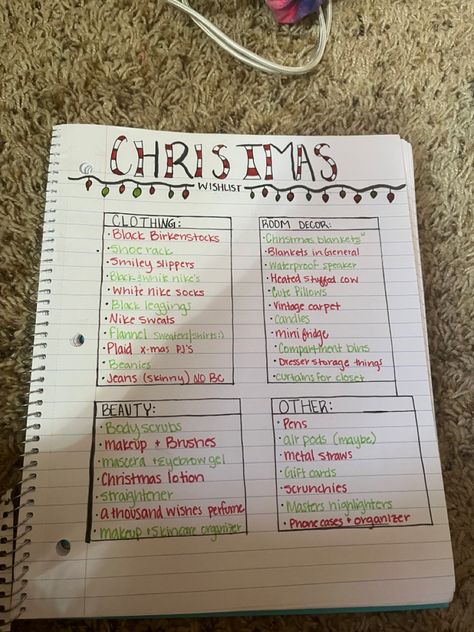 CHRISTMAS
WISHLIST
CLOTHING:
• Black Birkenstocks
• Shoe rack
• Smiley slippers
• Black + white nike's
• White nike socks
• Black leggings
• Nike sweats
• Flannel sweaters/shirts:)
• Plaid x-mas PJ's
• Beanies
• Jeans (skinny) NO BC
ROOM DECOR:
• Christmas blankets"
• Blankets in General
• Waterproof speaker
• Heated stuffed cow
• Cute Pillows
• Vintage carpet
• Candles
• mini fridge
• Compartment bins
• Dresser storage things
• curtains for closet
BEAUTY:
• Body scrubs
• makeup + Brushes
• mascera + eyebrow gel
• Christmas lotion
• straightener
• a thousand wishes perfume
• makeup + Skincare organizer
OTHER:
• Pens
• air pods (maybe)
• metal straws
• Gift cards
• scrunchies
• Masters highlighters
• Phone cases + organizer